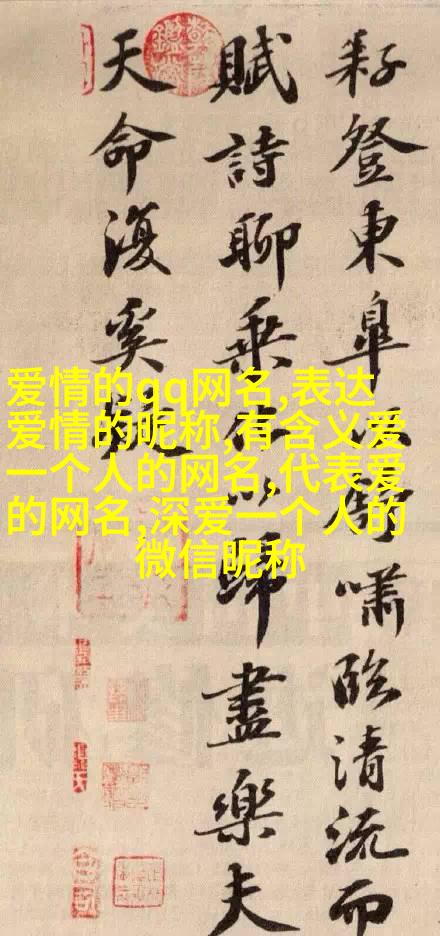 耔登東皋以舒嘯臨清流而
賦詩聊乘化以歸盡樂夫
天命復奚疑
爱情的qq网名,表达
爱情的昵称,有含义爱
一个人的网名,代表爱
的网名,深爱一个人的
微信昵称